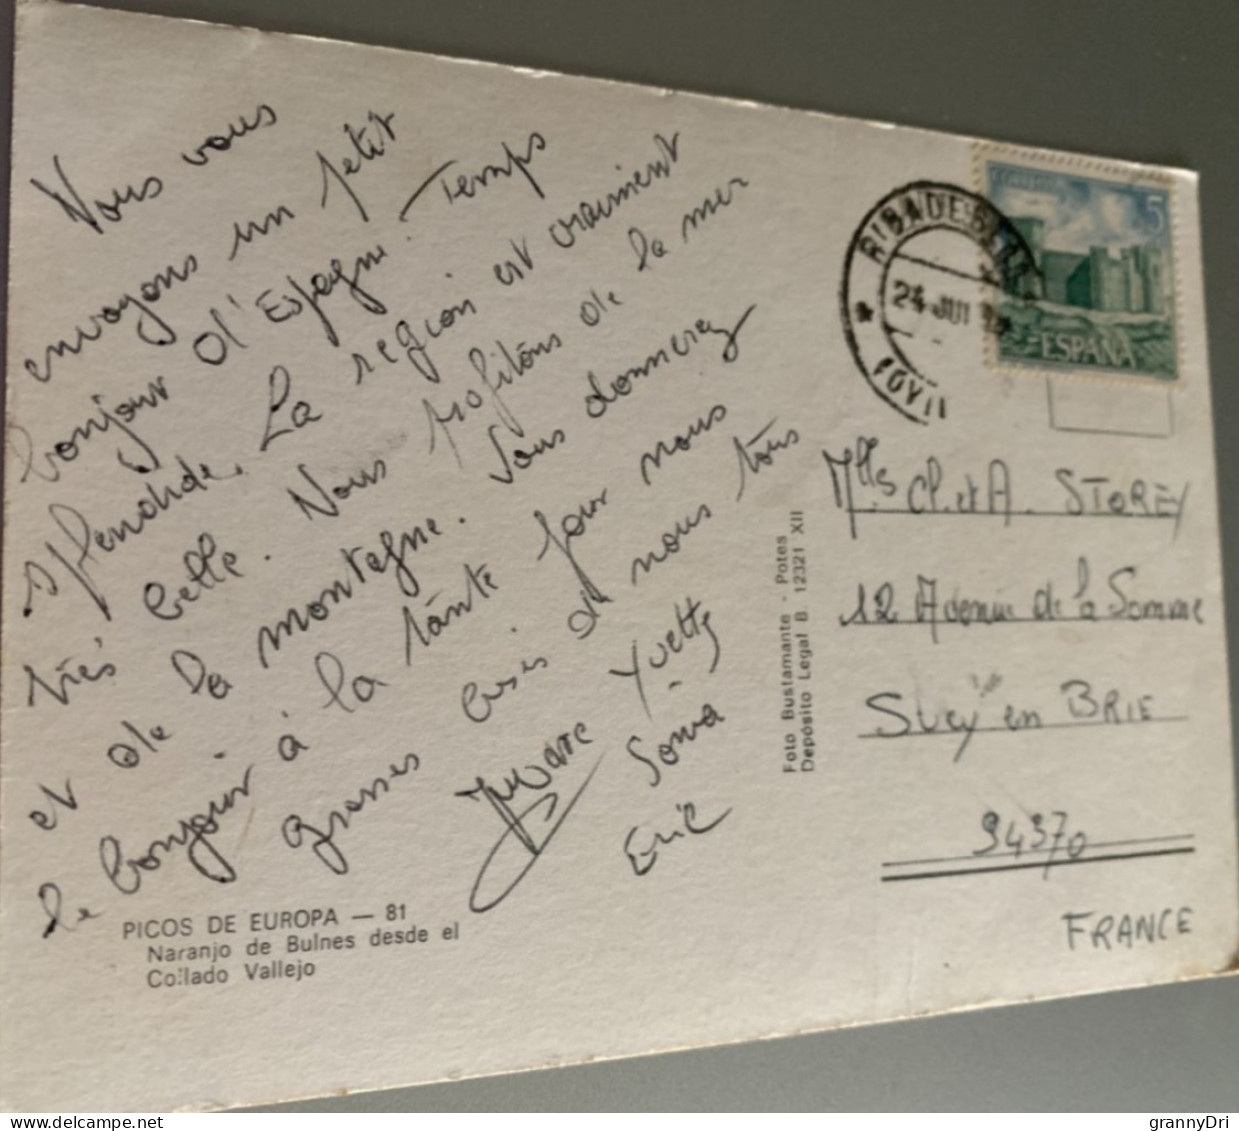 Nous vous
envoyons un petit
bonjour d'Espagne. Temps
splendide. La région est vraiment
très belle. Nous profitons de la mer
et de la montagne. Vous donnerez
le bonjour à la tante pour nous
grosses bises de nous tous
Yvette
Sonia
Eric
PICOS DE EUROPA — 81
Naranjo de Bulnes desde el
Collado Vallejo
Foto Bustamante - Potes
Depósito Legal B. 12321 XII
CORREOS
5
ESPAÑA
24 JUL
Mlles Ch. et A. STOREY
12 Avenue de la Somme
SUCY en BRIE
94370
FRANCE
delcampe.net
grannyDri